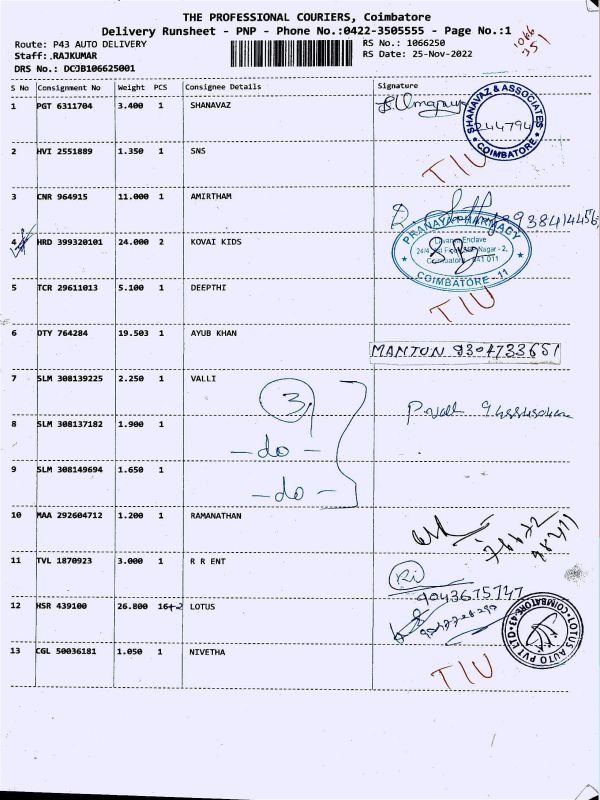 THE PROFESSIONAL COURIERS, Coimbatore
Delivery Runsheet - PNP - Phone No.:0422-3505555 - Page No.:1
Route: P43 AUTO DELIVERY
RS No.: 1066250
1066
351
Staff:.RAJKUMAR
RS Date: 25-Nov-2022
DRS No.: DCJB106625001
S No Consignment No Weight PCS Consignee Details Signature
1 PGT 6311704 3.400 1 SHANAVAZ
SHANAVAZ & ASSOCIATES
244794
COIMBATORE
2 HVI 2551889 1.350 1 SNS TIU
3 CNR 964915 11.000 1 AMIRTHAM
4 HRD 399320101 24.000 2 KOVAI KIDS
PRANAYA PHARMACY
Enclave
Nagar - 2,
COIMBATORE - 11
5 TCR 29611013 5.100 1 DEEPTHI TIU
6 OTY 764284 19.503 1 AYUB KHAN
7 SLM 308139225 2.250 1 VALLI
3
8 SLM 308137182 1.900 1
- do -
9 SLM 308149694 1.650 1
- do -
10 MAA 292604712 1.200 1 RAMANATHAN
11 TVL 1870923 3.000 1 R R ENT
9043675747
12 HSR 439100 26.800 16+2 LOTUS
LOTUS AUTO PVT LTD
COIMBATORE-43
13 CGL 50036181 1.050 1 NIVETHA TIU